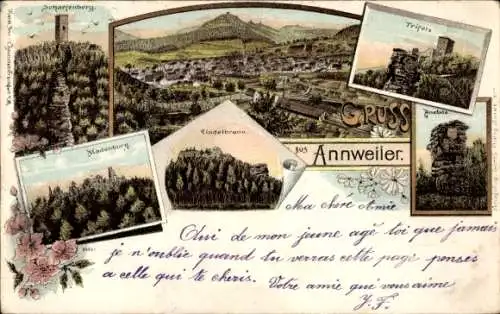 Scharfenberg.
Trifels
GRUSS
aus
Annweiler.
Anebos
Madenburg
Lindelbrunn.
Ma chère Amie
Qui de mon jeune age toi que jamais
je n'oublie quand tu verras cette page penses
a celle qui te cheris. Votre amie qui vous aime
Y. F.